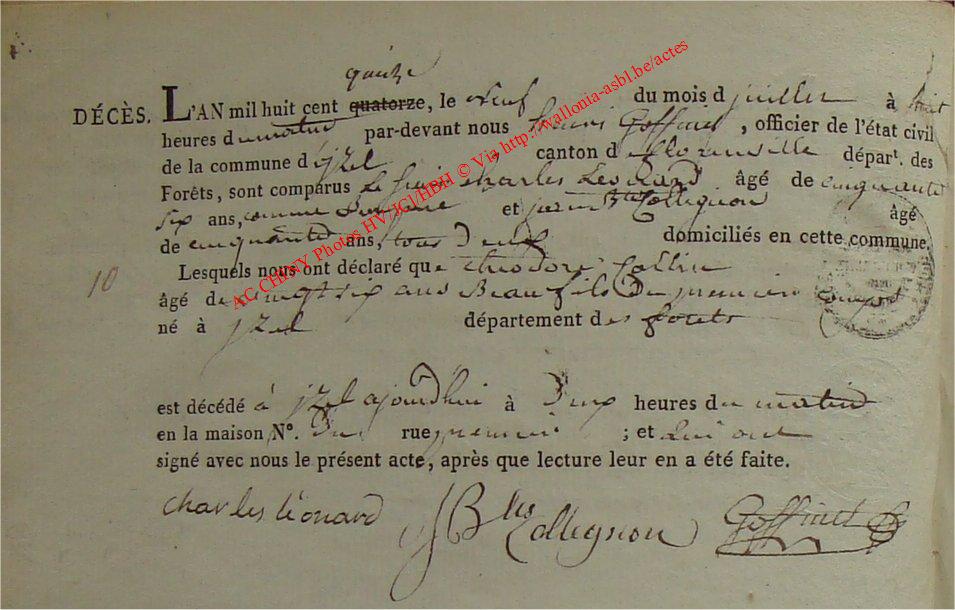 quinze
DÉCÈS. L'AN mil huit cent quatorze, le neuf du mois d juillet à huit
heures du matin par-devant nous Goffinet, officier de l'état civil
de la commune d'jzel canton d département des
Forêts, sont comparus Le sieur Charles Leonard âgé de cinquante
six ans, et jean Bte Collegnon âgé
de cinquante ans, tous Deux domiciliés en cette commune.
Lesquels nous ont déclaré que theodore Collin
10
âgé de vingt six ans Beau fils Du premier comparant
né à jzel département des forets
est décédé à jzel ajourd'hui à Deux heures du matin
en la maison N°. Du rue premier ; et qui ont
signé avec nous le présent acte, après que lecture leur en a été faite.
charles léonard JBte Collegnon Goffinet
AC CHINY Photos HV/JCI/HBH © Via http://wallonia-asbl.be/actes